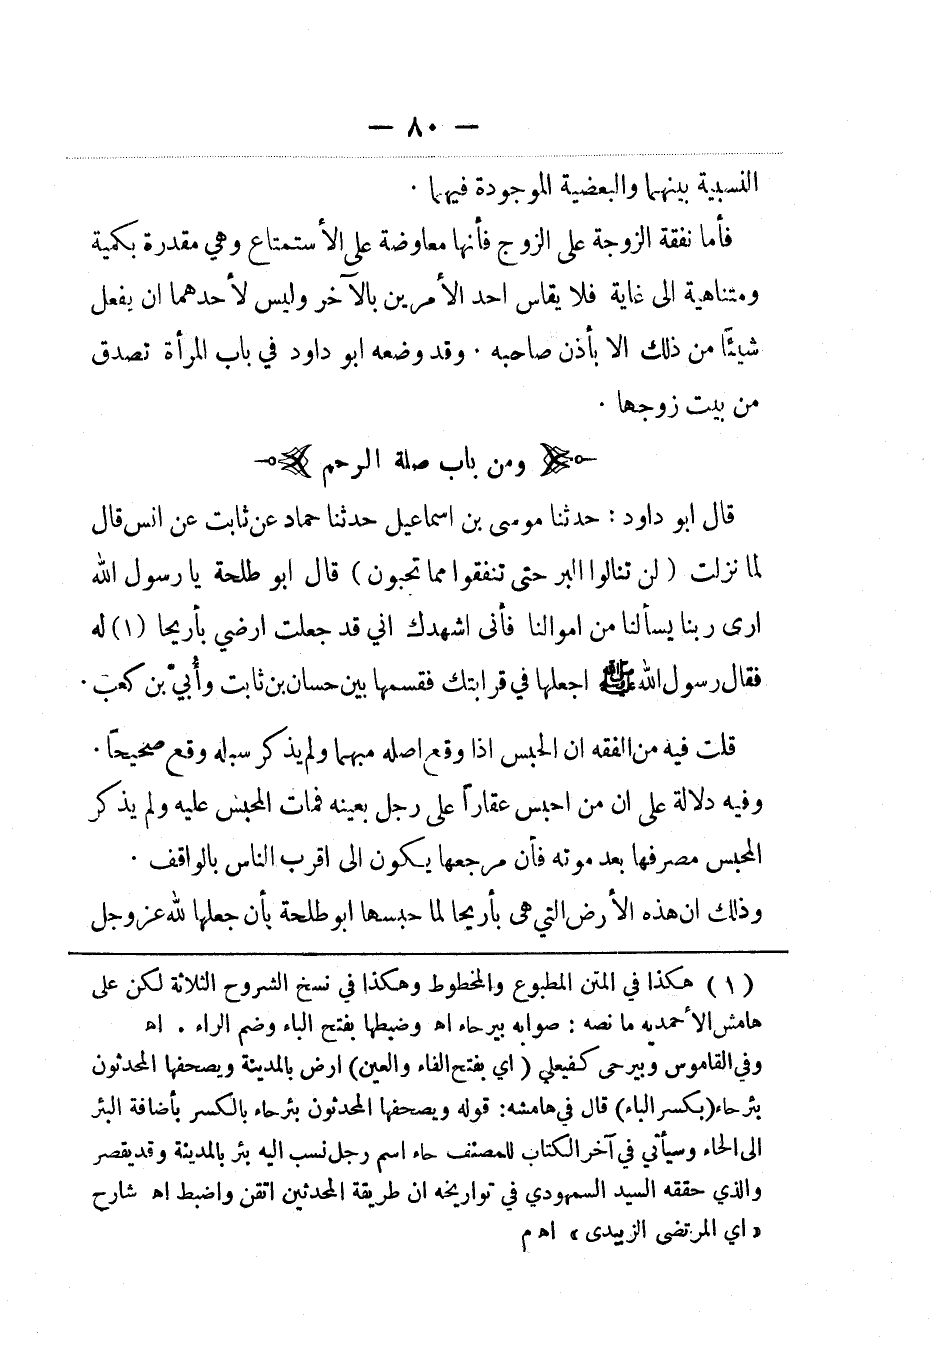 — ٨٠ —
النسبية بينهما والبعضية الموجودة فيهما .
فأما نفقة الزوجة على الزوج فأنها معاوضة على الأستمتاع وهي مقدرة بكمية
ومتناهية الى غاية فلا يقاس احد الأمرين بالآخر وليس لأحدهما ان يفعل
شيئًا من ذلك الا بأذن صاحبه . وقد وضعه ابو داود في باب المرأة تصدق
من بيت زوجها .
ومن باب صلة الرحم
قال ابو داود : حدثنا موسى بن اسماعيل حدثنا حماد عن ثابت عن انس قال
لما نزلت ( لن تنالوا البر حتى تنفقوا مما تحبون ) قال ابو طلحة يا رسول الله
ارى ربنا يسألنا من اموالنا فأنى اشهدك اني قد جعلت ارضي بأريحا (١) له
فقال رسول الله ﷺ اجعلها في قرابتك فقسمها بين حسان بن ثابت وأُبيّ بن كعب .
قلت فيه من الفقه ان الحبس اذا وقع اصله مبهما ولم يذكر سبله وقع صحيحًا .
وفيه دلالة على ان من احبس عقاراً على رجل بعينه فمات المحبس عليه ولم يذكر
المحبس مصرفها بعد موته فأن مرجعها يكون الى اقرب الناس بالواقف .
وذلك ان هذه الأرض التي هي بأريحا لما حبسها ابو طلحة بأن جعلها لله عز وجل
(١) هكذا في المتن المطبوع والمخطوط وهكذا في نسخ الشروح الثلاثة لكن على
هامش الأحمدية ما نصه : صوابه بيرحاء اه وضبطها بفتح الباء وضم الراء . اه
وفي القاموس وبيرحى كفيعلي ( اي بفتح الفاء والعين) ارض بالمدينة ويصحفها المحدثون
بئر حاء (بكسر الباء) قال في هامشه: قوله ويصحفها المحدثون بئر حاء بالكسر بأضافة البئر
الى الحاء وسيأتي في آخر الكتاب للمصنف حاء اسم رجل نسب اليه بئر بالمدينة وقد يقصر
والذي حققه السيد السمهودي في تواريخه ان طريقة المحدثين اتقن واضبط اه شارح
« اي المرتضى الزبيدى » اه م